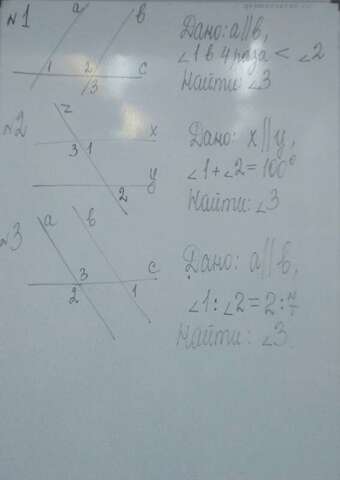 №1
a
b
1
2
3
c
Дано: a||b,
∠1 в 4 раза < ∠2
Найти: ∠3
№2
z
x
3
1
y
2
Дано: x||y,
∠1+∠2=100°
Найти: ∠3
№3
a
b
3
c
2
1
Дано: a||b,
∠1:∠2=2:
Найти: ∠3